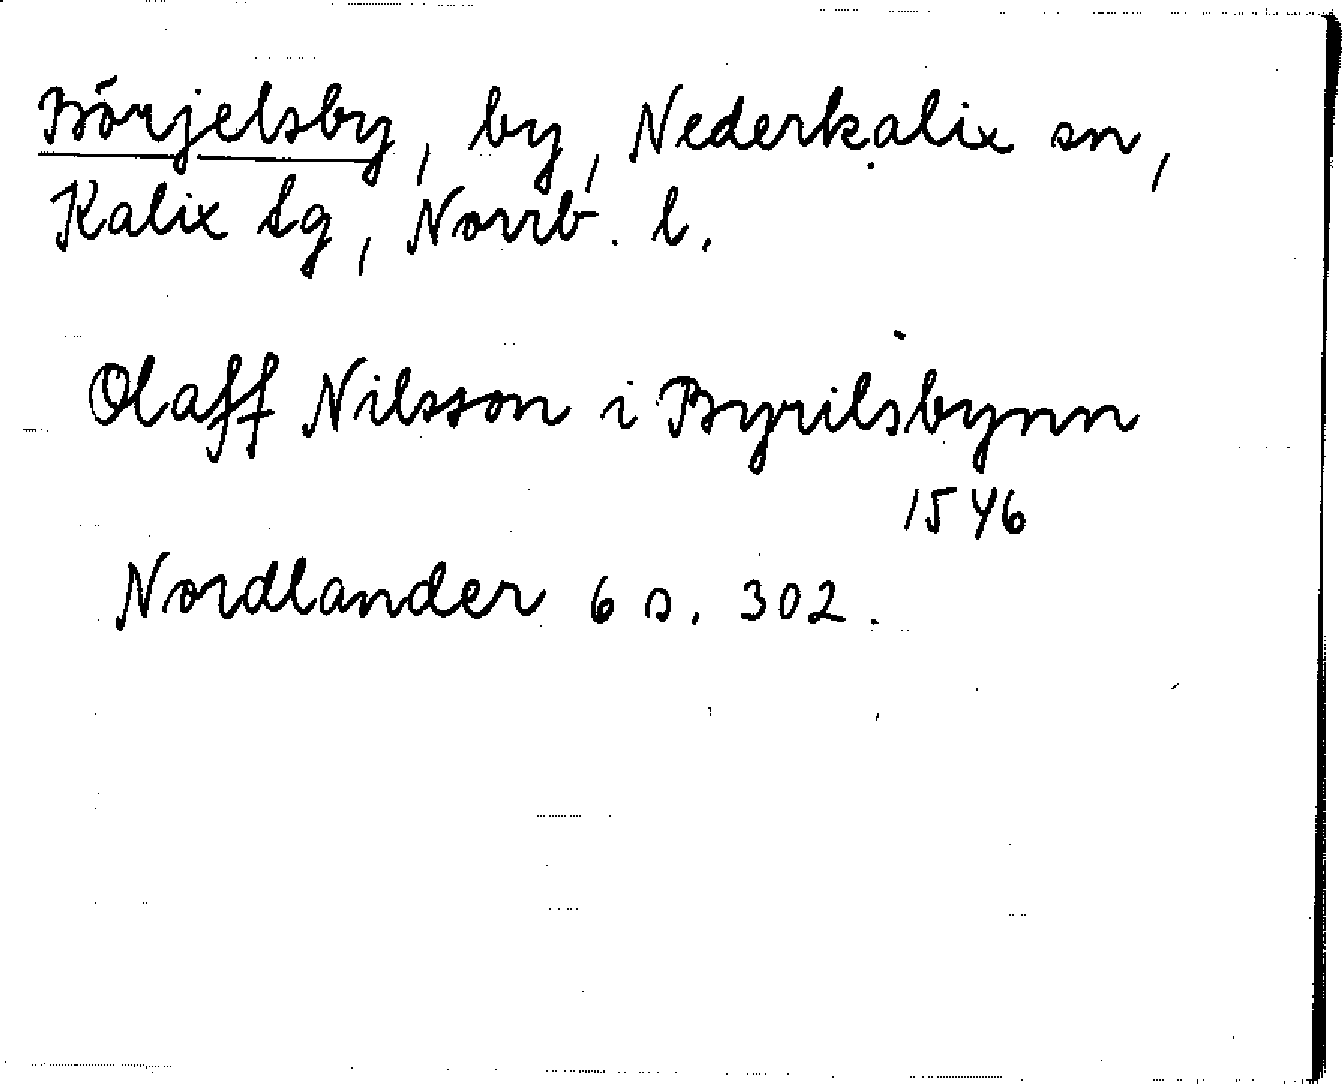 Börjelsby, by, Nederkalix sn,
Kalix tg, Norrb. l.
Olaff Nilsson i Byrilsbynn
1546
Nordlander 6 s. 302.